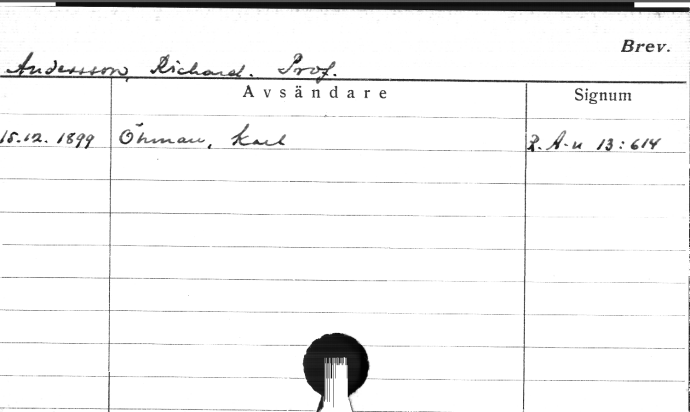 Brev.
Andersson, Richard. Prof.
Avsändare Signum
15.12. 1899 Öhman, Karl R. A-n 13:614